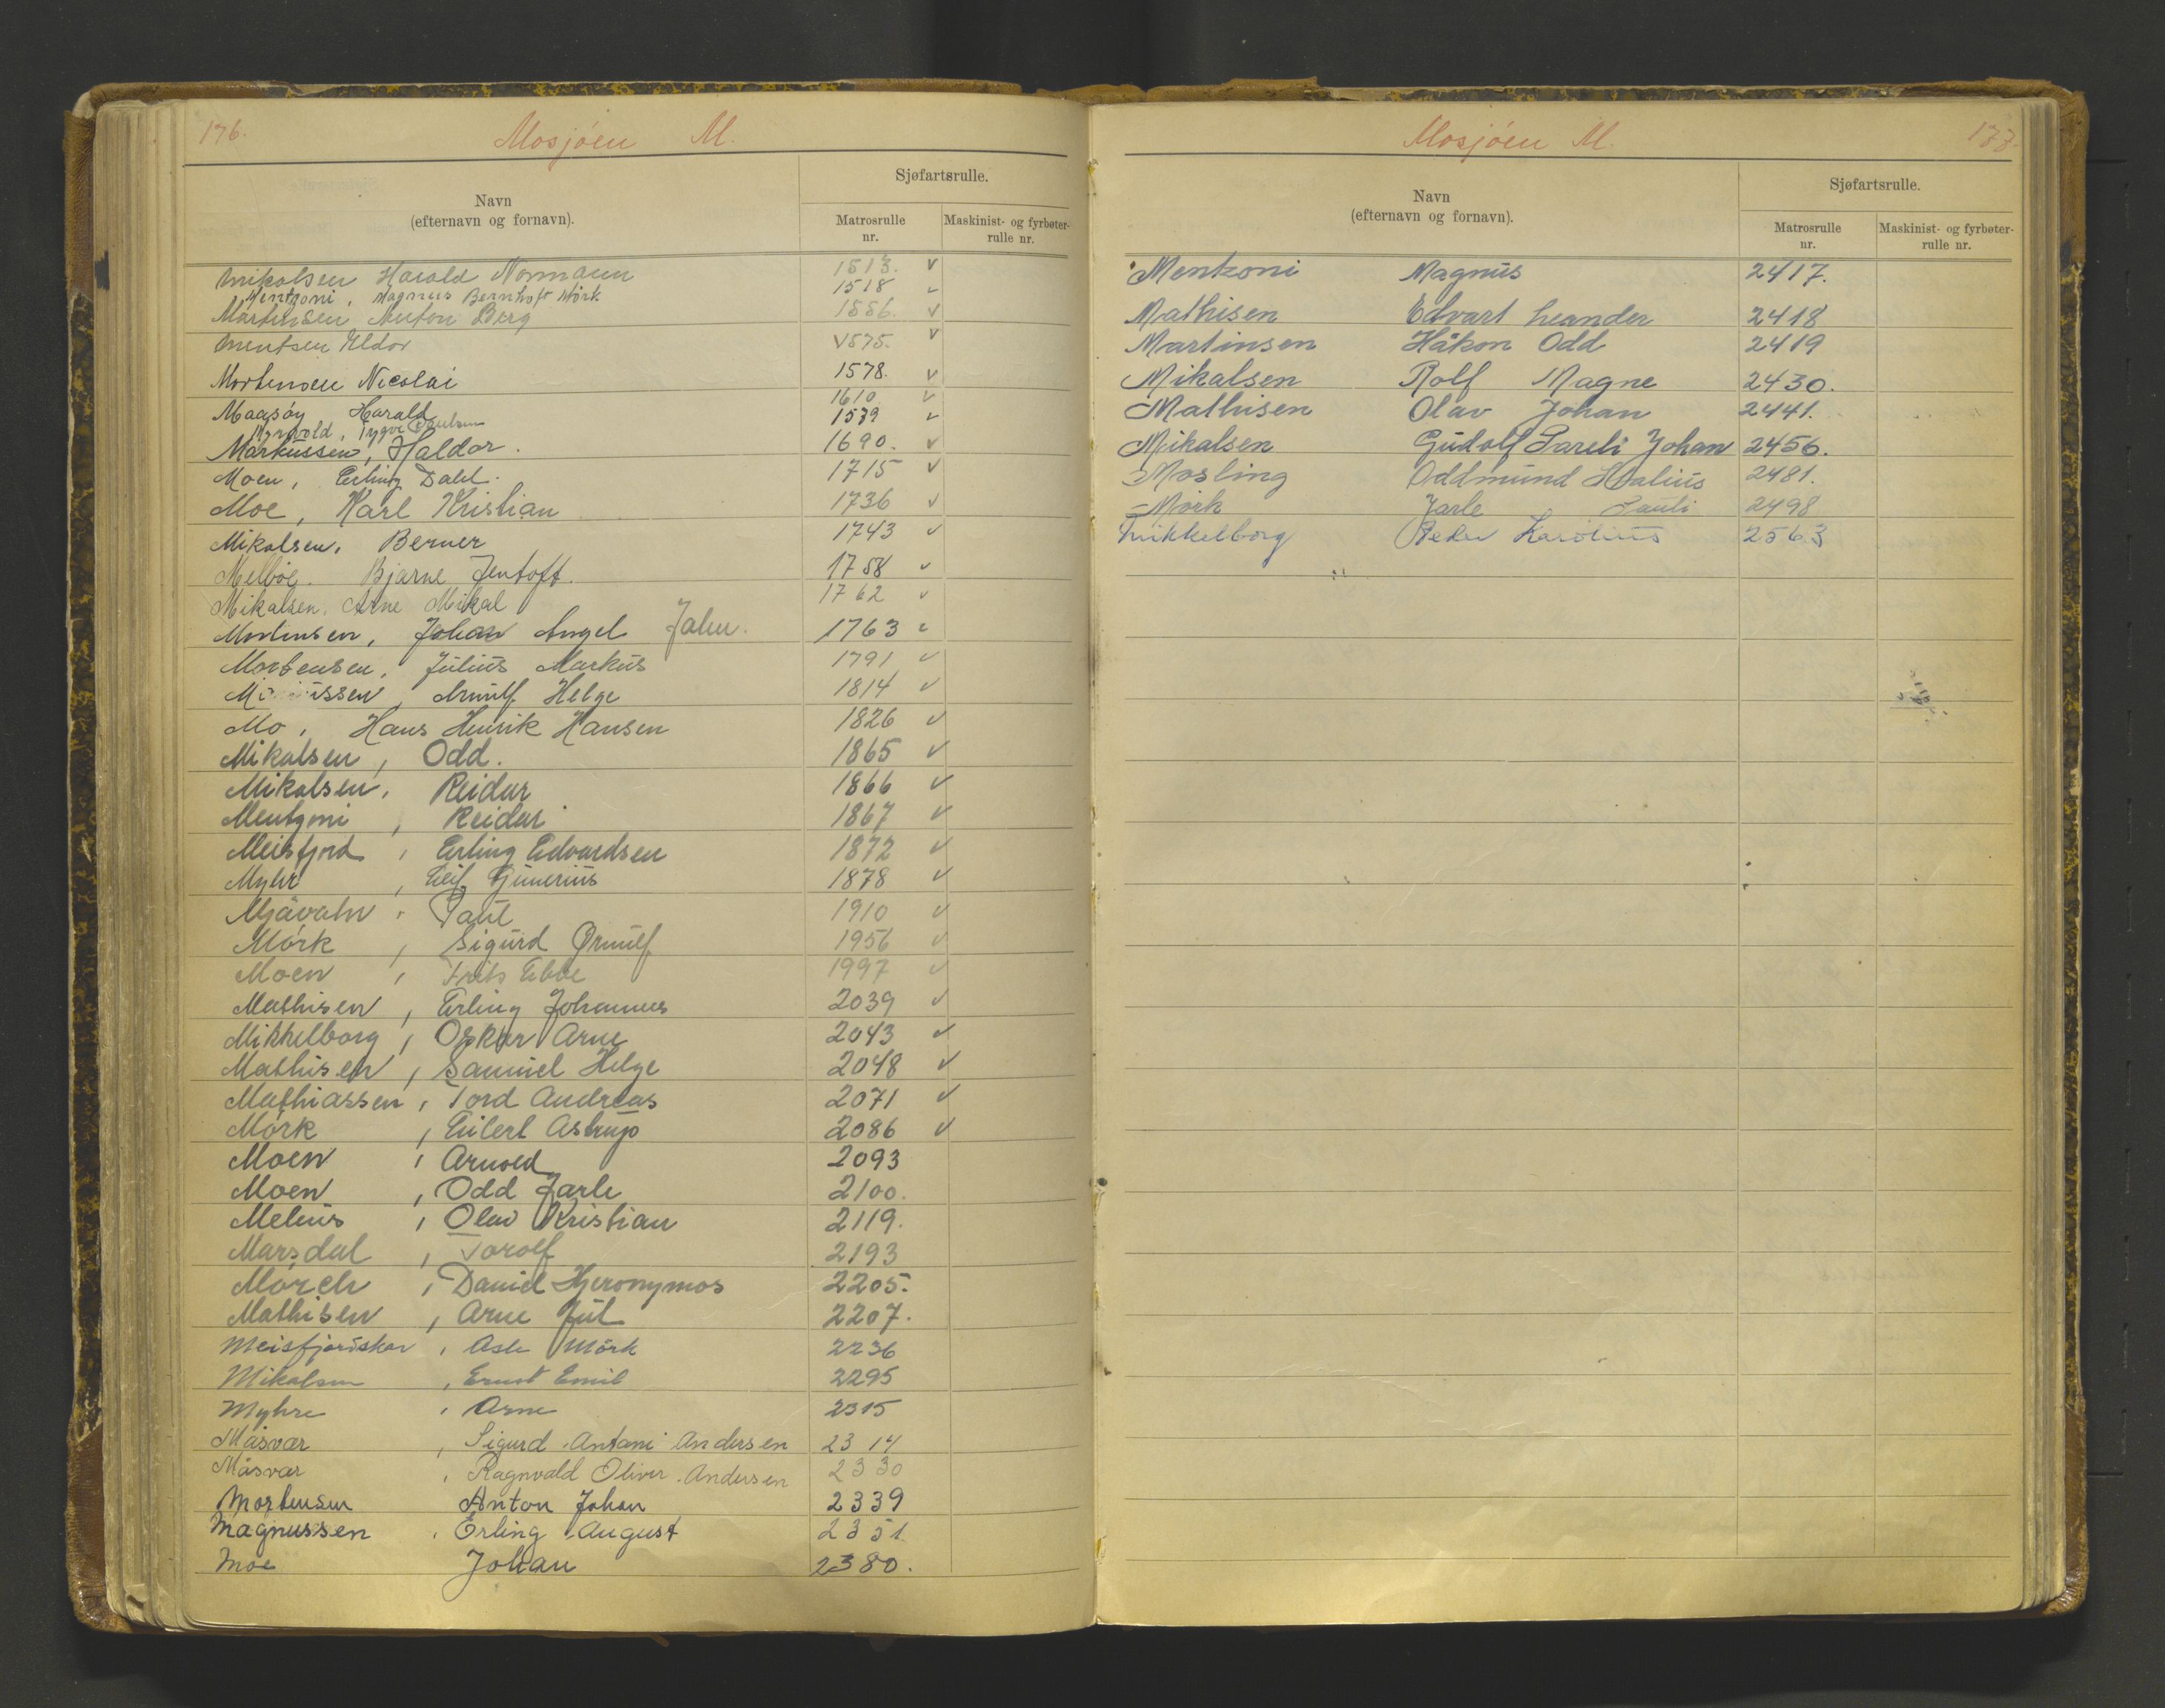 176.
Mosjøen M.
Navn
(efternavn og fornavn).
Sjøfartsrulle.
Matrosrulle
nr.
Maskinist- og fyrbøter-
rulle nr.
Mikalsen Harald Normann 1513. v
Mentzoni, Magnus Bernhoft Mörk 1518 v
Martinsen Anton Berg 1556. v
Mentsen Eldor 1575. v
Mortensen Nicolai 1578. v
Maasøy Harald 1610 v
Myrvold, Tygve Paulsen 1539 v
Markussen, Haldor. 1690. v
Moen, Erling Dahl. 1715 v
Moe, Karl Kristian 1736 v
Mikalsen, Berner 1743 v
Melbøe. Bjarne Jentoft. 1758 v
Mikalsen, Arne Mikal 1762 v
Mortensen, Johan Angel John. 1763 v
Mortensen, Julius Markus 1791 v
Arnulf Helge 1814 v
Mo, Hans Henrik Hansen 1826 v
Mikalsen, Odd. 1865 v
Mikalsen, Reidar 1866 v
Mentzoni, Reidar 1867 v
Meisfjord, Erling Edvardsen 1872 v
Myhr, Leif Gunerius 1878 v
Mjåvatn, Paul 1910 v
Mörk, Sigurd Ørnulf 1956 v
Moen, Frits Ebbe 1997 v
Mathisen, Erling Johannes 2039 v
Mikkelborg, Oskar Arne 2043 v
Mathisen, Samuel Helge 2048 v
Mathiassen, Tord Andreas 2071 v
Mörk, Eilert Astrup 2086 v
Moen, Arnold 2093
Moen, Odd Jarle 2100.
Melius, Olav Kristian 2119.
Marsdal, Torolf 2193
Mörch, Daniel Hjeronymos 2205.
Mathisen, Arne Jul 2207.
Meisfjordskar, Asle Mörk 2236
Mikalsen, Ernst Emil 2295
Myhre, Arne 2315
Måsvær, Sigurd Antani Andersen 2314
Måsvær, Ragnvald Oliver Andersen 2330
Mortensen Anton Johan 2339
Magnussen, Erling August 2351.
Moe Johan 2380.
Mosjøen M.
177.
Navn
(efternavn og fornavn).
Sjøfartsrulle.
Matrosrulle
nr.
Maskinist- og fyrbøter-
rulle nr.
Mentzoni Magnus 2417.
Mathisen Edvart Leander 2418
Martinsen Håkon Odd 2419
Mikalsen Rolf Magne 2430.
Mathisen Olav Johan 2441.
Mikalsen Gudolf Sareli Johan 2456.
Mosling Oddmund 2481.
Mörk Jarle Pauli 2498
Mikkelborg Peder Karolius 2563